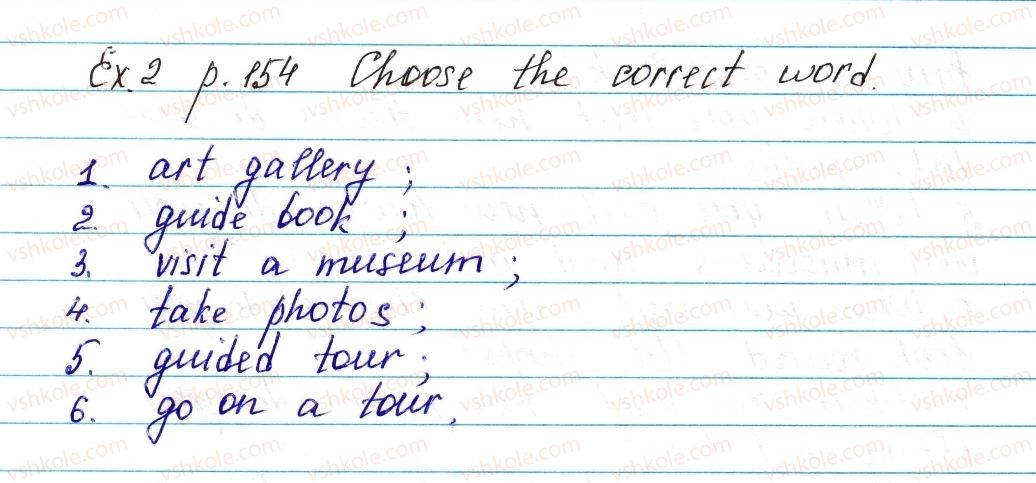 Ex. 2 p. 154 Choose the correct word.
1. art gallery ;
2. guide book ;
3. visit a museum ;
4. take photos ;
5. guided tour ;
6. go on a tour.